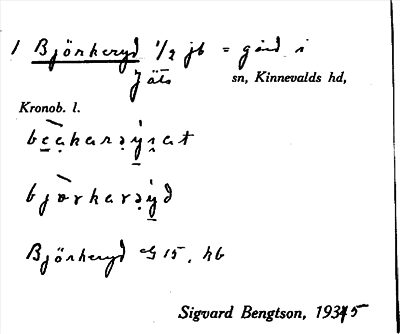 1 Björkeryd 1/2 jb = gård i
Jäts sn, Kinnevalds hd,
Kronob. l.
bjørkarəy̍d
Björkeryd G 15. hb
Sigvard Bengtson, 1935